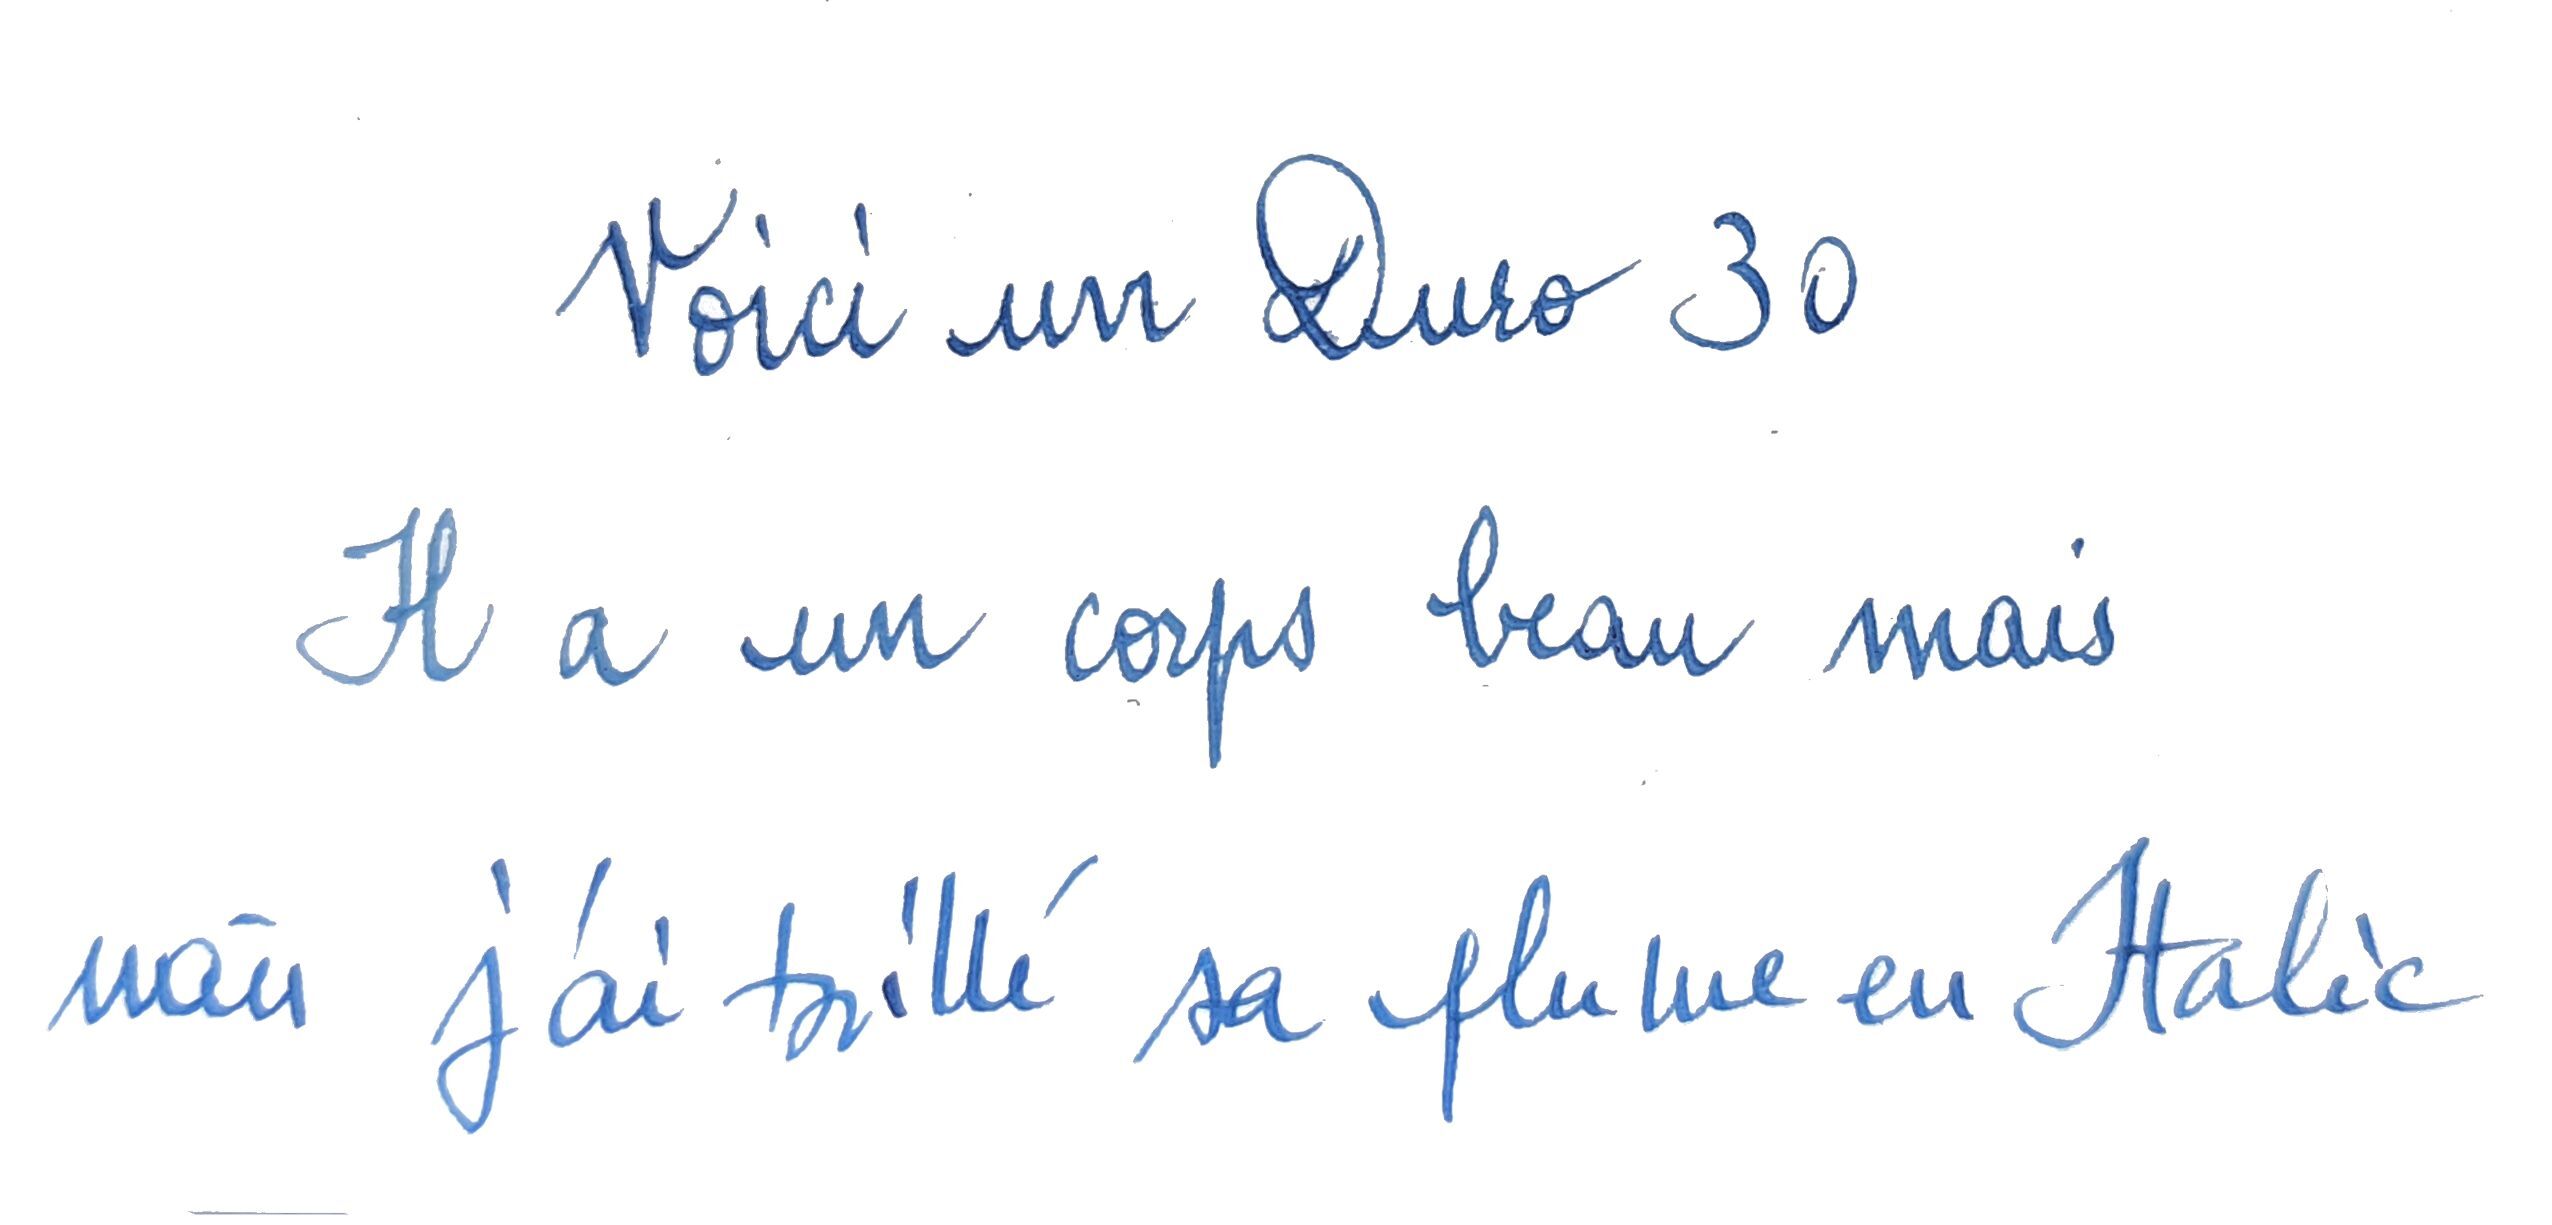 Voici un Duro 30
Il a un corps beau mais
mais j'ai trillé sa plume en Italic